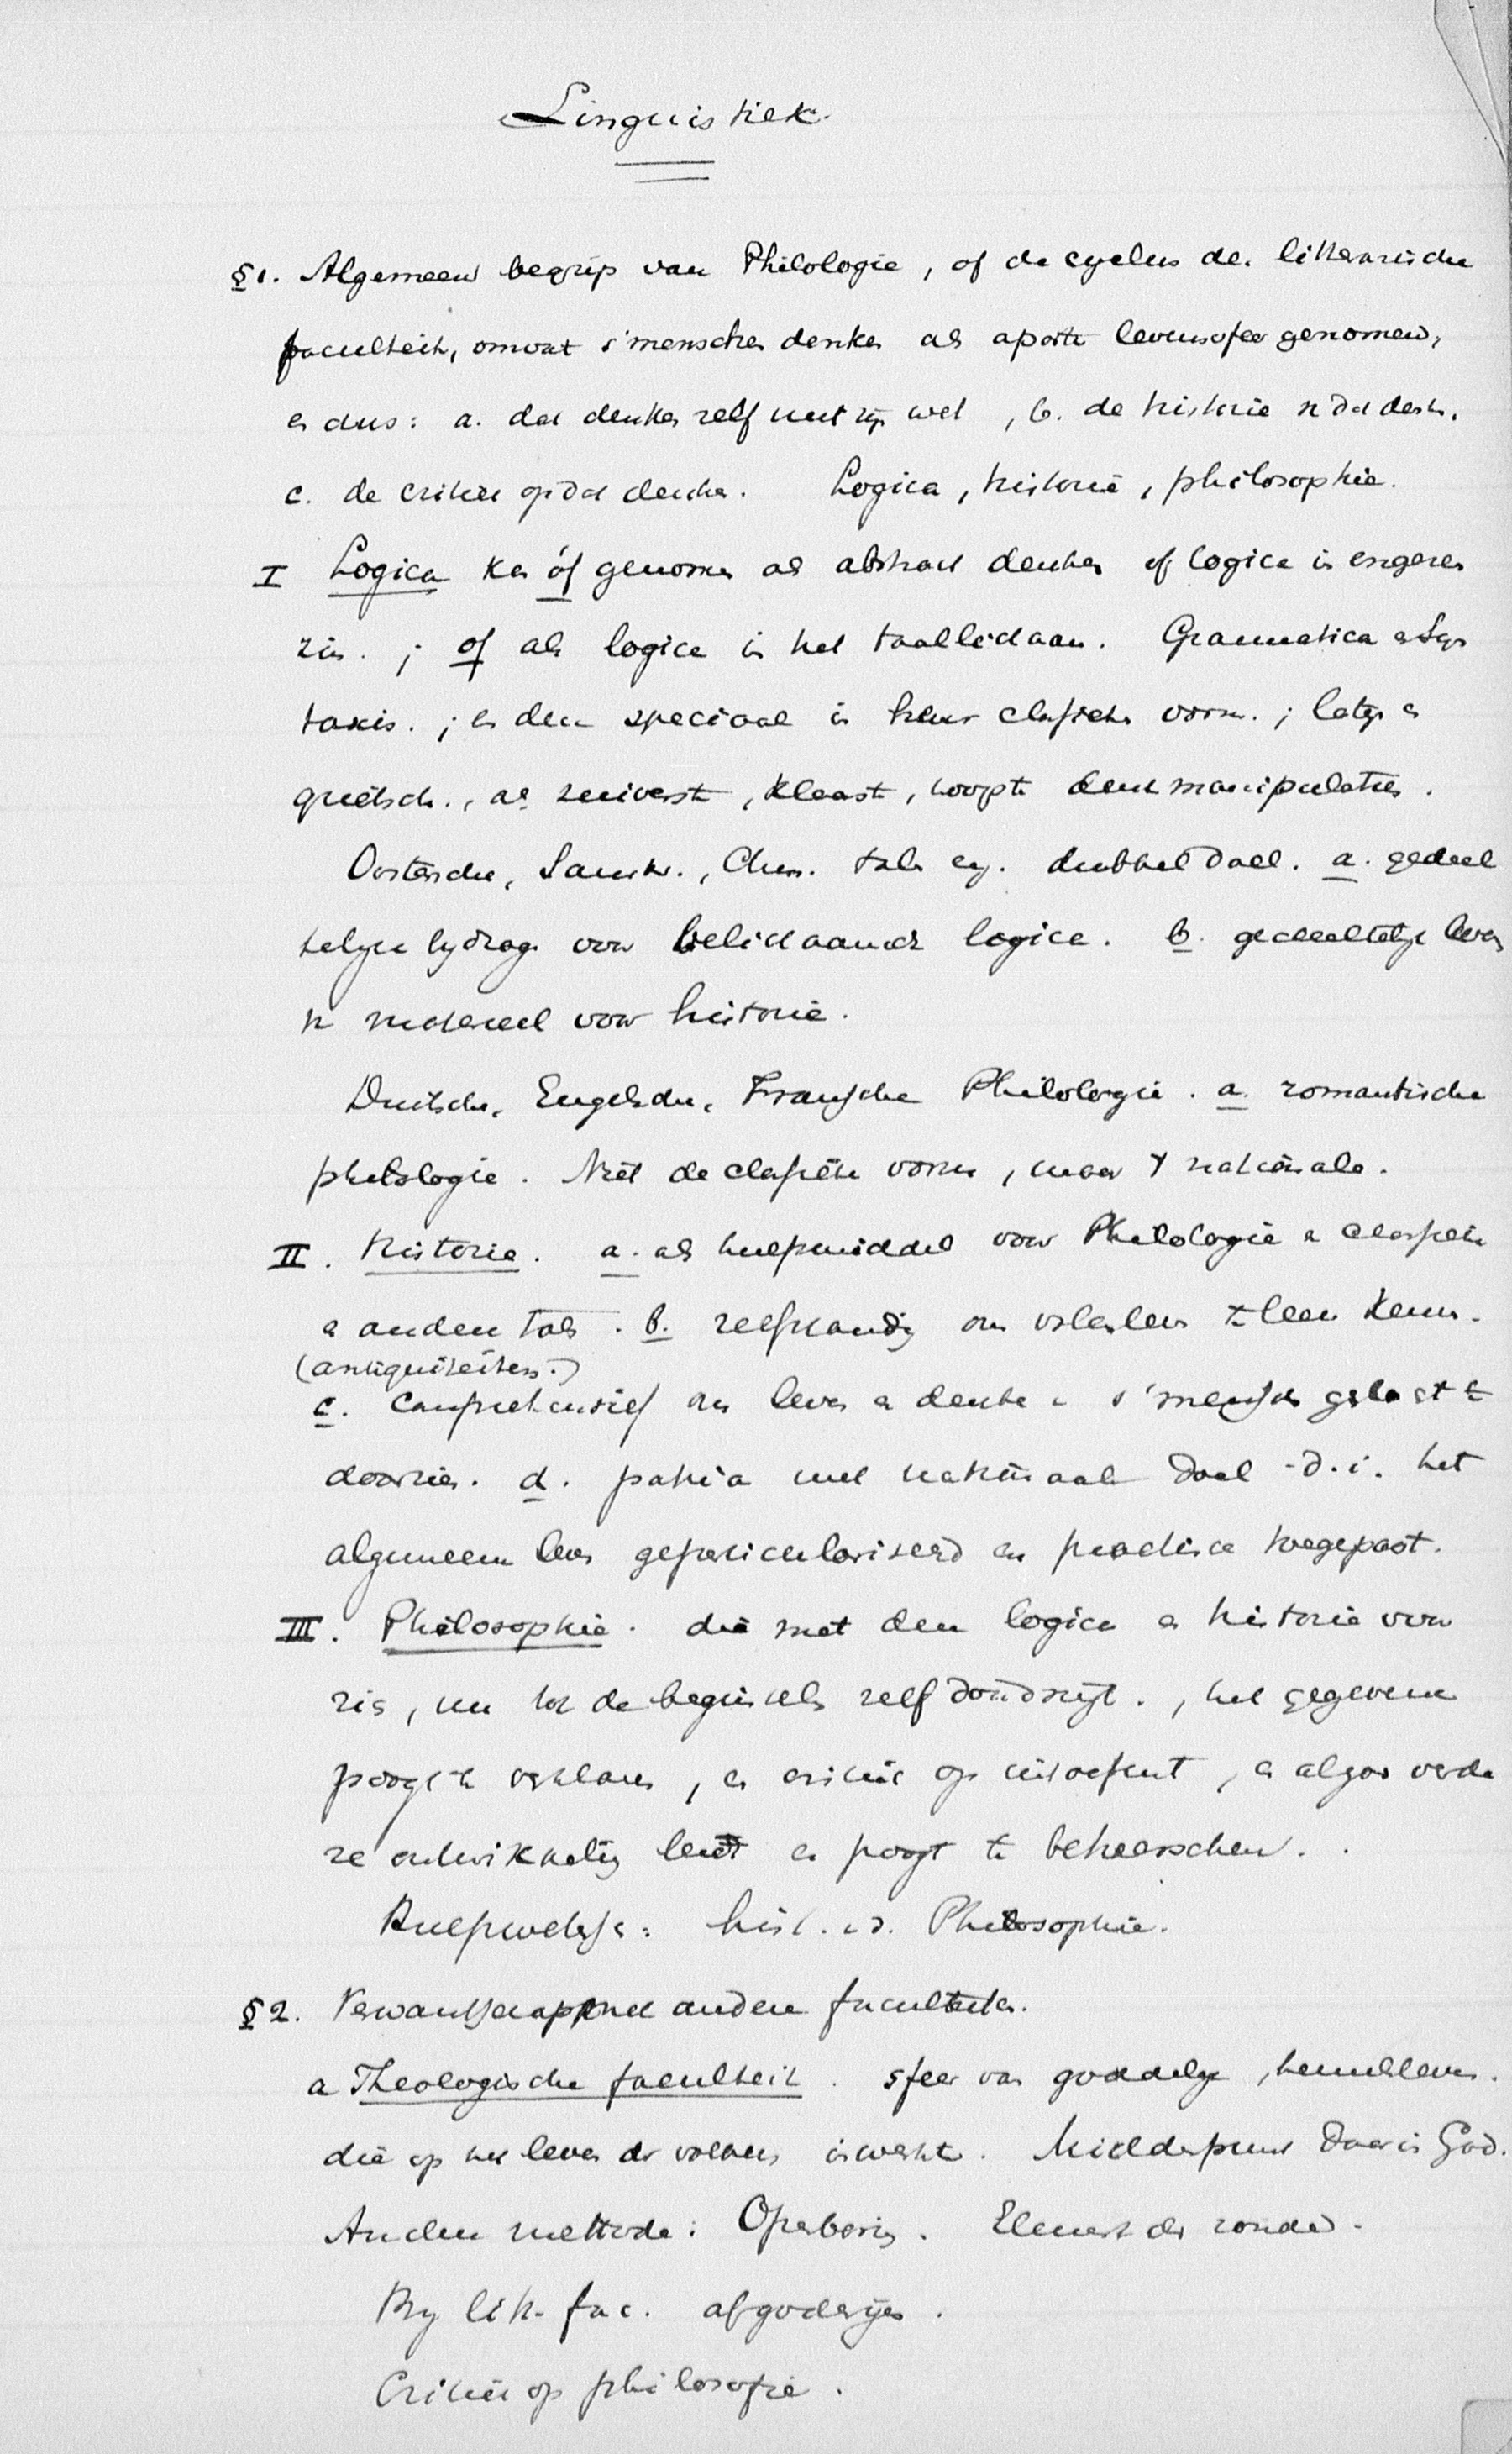 Linguistiek.
§1. Algemeen begrip van Philologie, of de cyclus der litterarische
faculteit, omvat s'menschen denken als aparte levenssfeer genomen,
en dus: a. dat denken zelf met zijn wet, b. de historie v dat denk.
c. de critiek op dat denken. Logica, historie, philosophie.
I Logica kan óf genomen als abstract denken of logica in engeren
zin. ; of als logica in het taallichaam. Grammatica en Syn
taxis. ; en deze speciaal in haar classieke vorm. ; latijn en
grieksch., als zuiverste, klaarste, denkmanipulaties.
Oostersche, Sanskr., Chin. talen dubbel doel. a. gedeel
telijke bijdrage voor belichaamde logica. b. gedeeltelijk leven
v materieel voor historie.
Duitsche, Engelsche, Fransche Philologie. a. romantische
philologie. Niet de classieke vorm, maar nationale.
II. Historie. a. als hulpmiddel voor Philologie en classieke
en andere talen. b. zelfstandig om te leeren kennen.
(antiquiteiten.)
c. Comprehensief om leven en denken s'menschen geslacht te
doorzien. d. patria met nationaal doel - d.i. het
algemeen leven geparticulariseerd en practisch toegepast.
III. Philosophie. die met deze logica en historie voor
zich, nu tot de beginselen zelf doordringt., het gegevene
poogt te verklaren, er critiek op uitoefent, en alzoo verde
re ontwikkeling leidt en poogt te beheerschen.
Hulpwetensch: hist. v.d. Philosophie.
§2. Verwantschap met andere faculteiten.
a Theologische faculteit. sfeer van goddelijk, hemelleven.
die op het leven der volken inwerkt. Middelpunt daar is God.
Andere methode: Openbaring. Element der zonde.
By litt. fac. afgoderijen.
Critiek op philosofie.